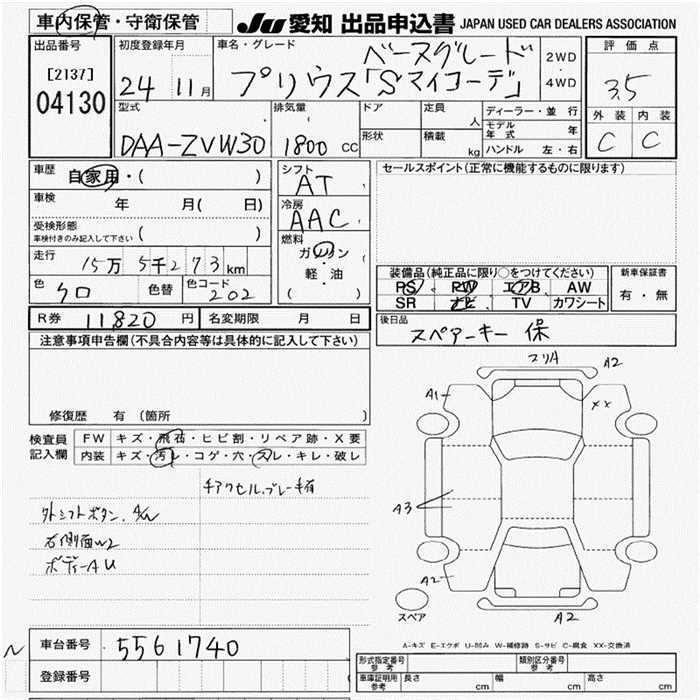 車内保管・守衛保管
JU 愛知 出品申込書 JAPAN USED CAR DEALERS ASSOCIATION
出品番号
[2137]
04130
初度登録年月
24 11月
車名・グレード
ベースグレード
プリウス「Sマイコーデ」
2WD
4WD
評価点
3.5
外装 内装
C C
型式
DAA-ZVW30
排気量
1800 cc
ドア
形状
定員
人
積載
kg
ディーラー・並行
モデル年式 年
ハンドル 左・右
車歴
自家用・( )
車検
年 月( 日)
受検形態
車検付きのみ記入して下さい ( )
走行
15万 5千273km
色
クロ
色替
色コード
202
シフト
AT
冷房
AAC
燃料
ガソリン
・
軽・油
( )
セールスポイント(正常に機能するものに限ります)
装備品(純正品に限り○をつけてください)
PS PW エアB AW
SR ナビ TV カワシート
新車保証書
有・無
R券 11,820 円 名変期限 月 日
後日品
スペアーキー 保
注意事項申告欄(不具合内容等は具体的に記入して下さい)
修復歴 有(箇所 )
検査員
記入欄
FW キズ・飛石・ヒビ割・リペア跡・X要
内装 キズ・汚レ・コゲ・穴・スレ・キレ・破レ
外シフトボタン
右側面W2
ボディーAU
A2
A1
XX
A3
A2
A2
スペア
A-キズ E-エクボ U-凹み W-補修跡 S-サビ C-腐食 XX-交換済
車台番号
5561740
登録番号
形式指定番号
参考
類別区分番号
参考
車庫証明用
参考
長さ cm 幅 cm 高さ cm